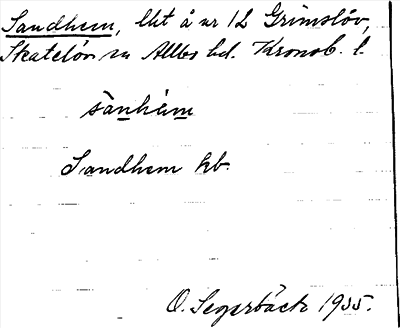 Sandhem, lht å nr 12 Grimslöv,
Skatelöv sn Allbo hd. Kronob. l.
sànhèm
Sandhem kb.
O. Segerbäck 1935.